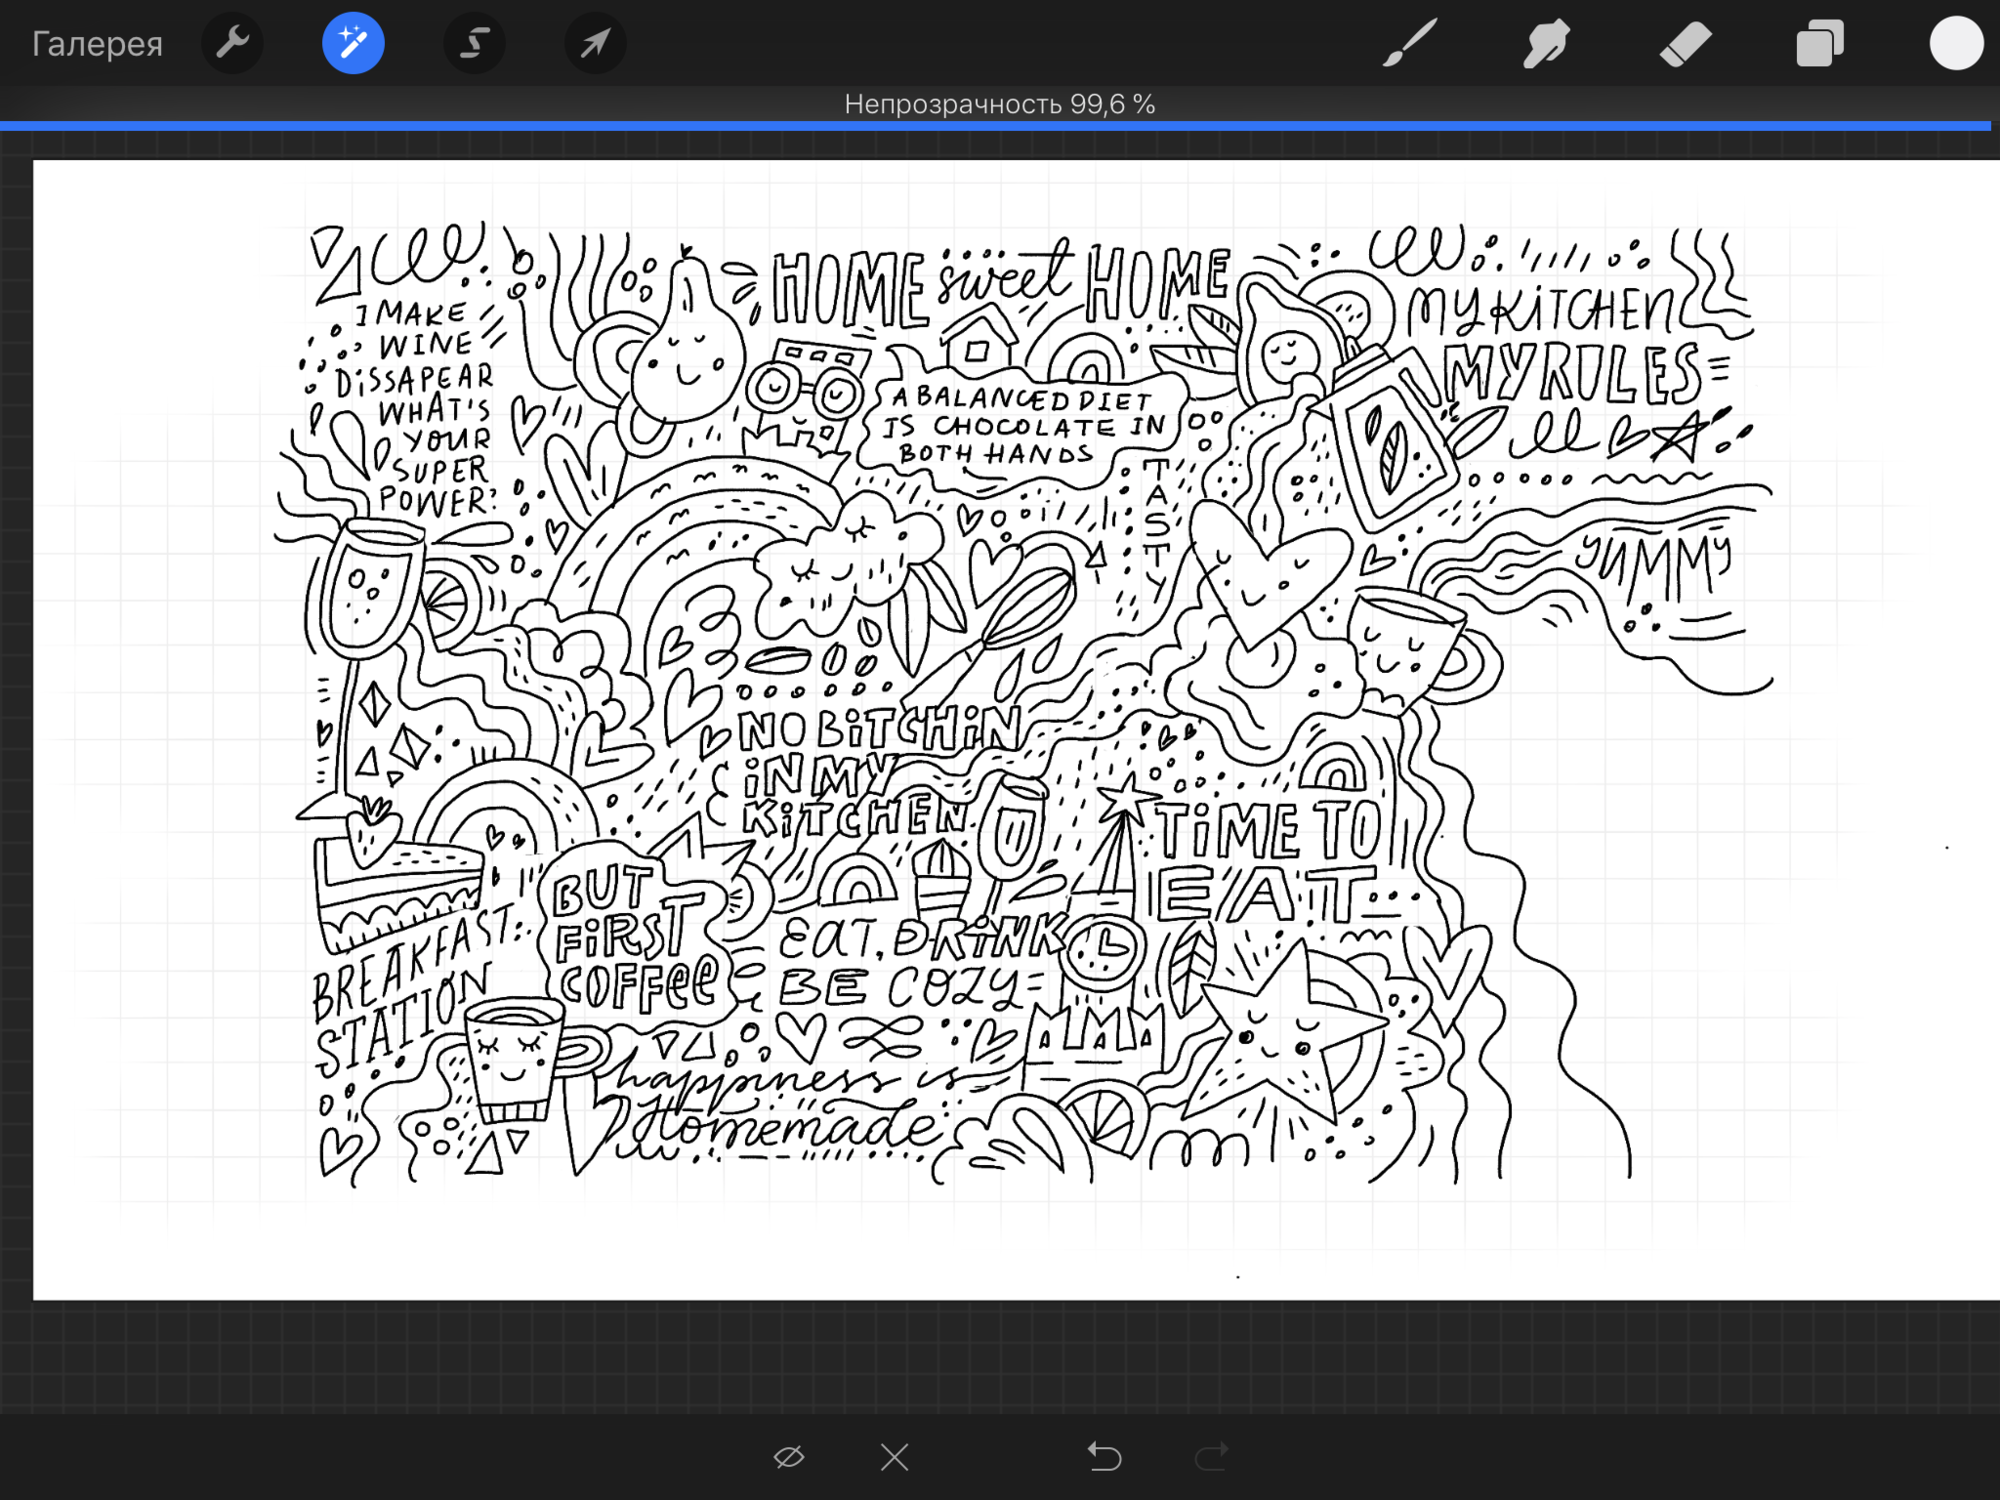 Галерея
Непрозрачность 99,6 %
I MAKE
WINE
DiSSAPEAR
WHAT'S
YOUR
SUPER
POWER?
HOME sweet HOME
A BALANCED DIET
IS CHOCOLATE IN
BOTH HANDS
MY KiTCHEN
MY RULES
TASTY
YUMMY
NO BiTCHiN
iN MY
KiTCHEN
TiME TO
EAT
BUT
FiRST
COFFee
EAT, DRiNK
BE COZY
BREAKFAST
STATION
happiness is
Homemade